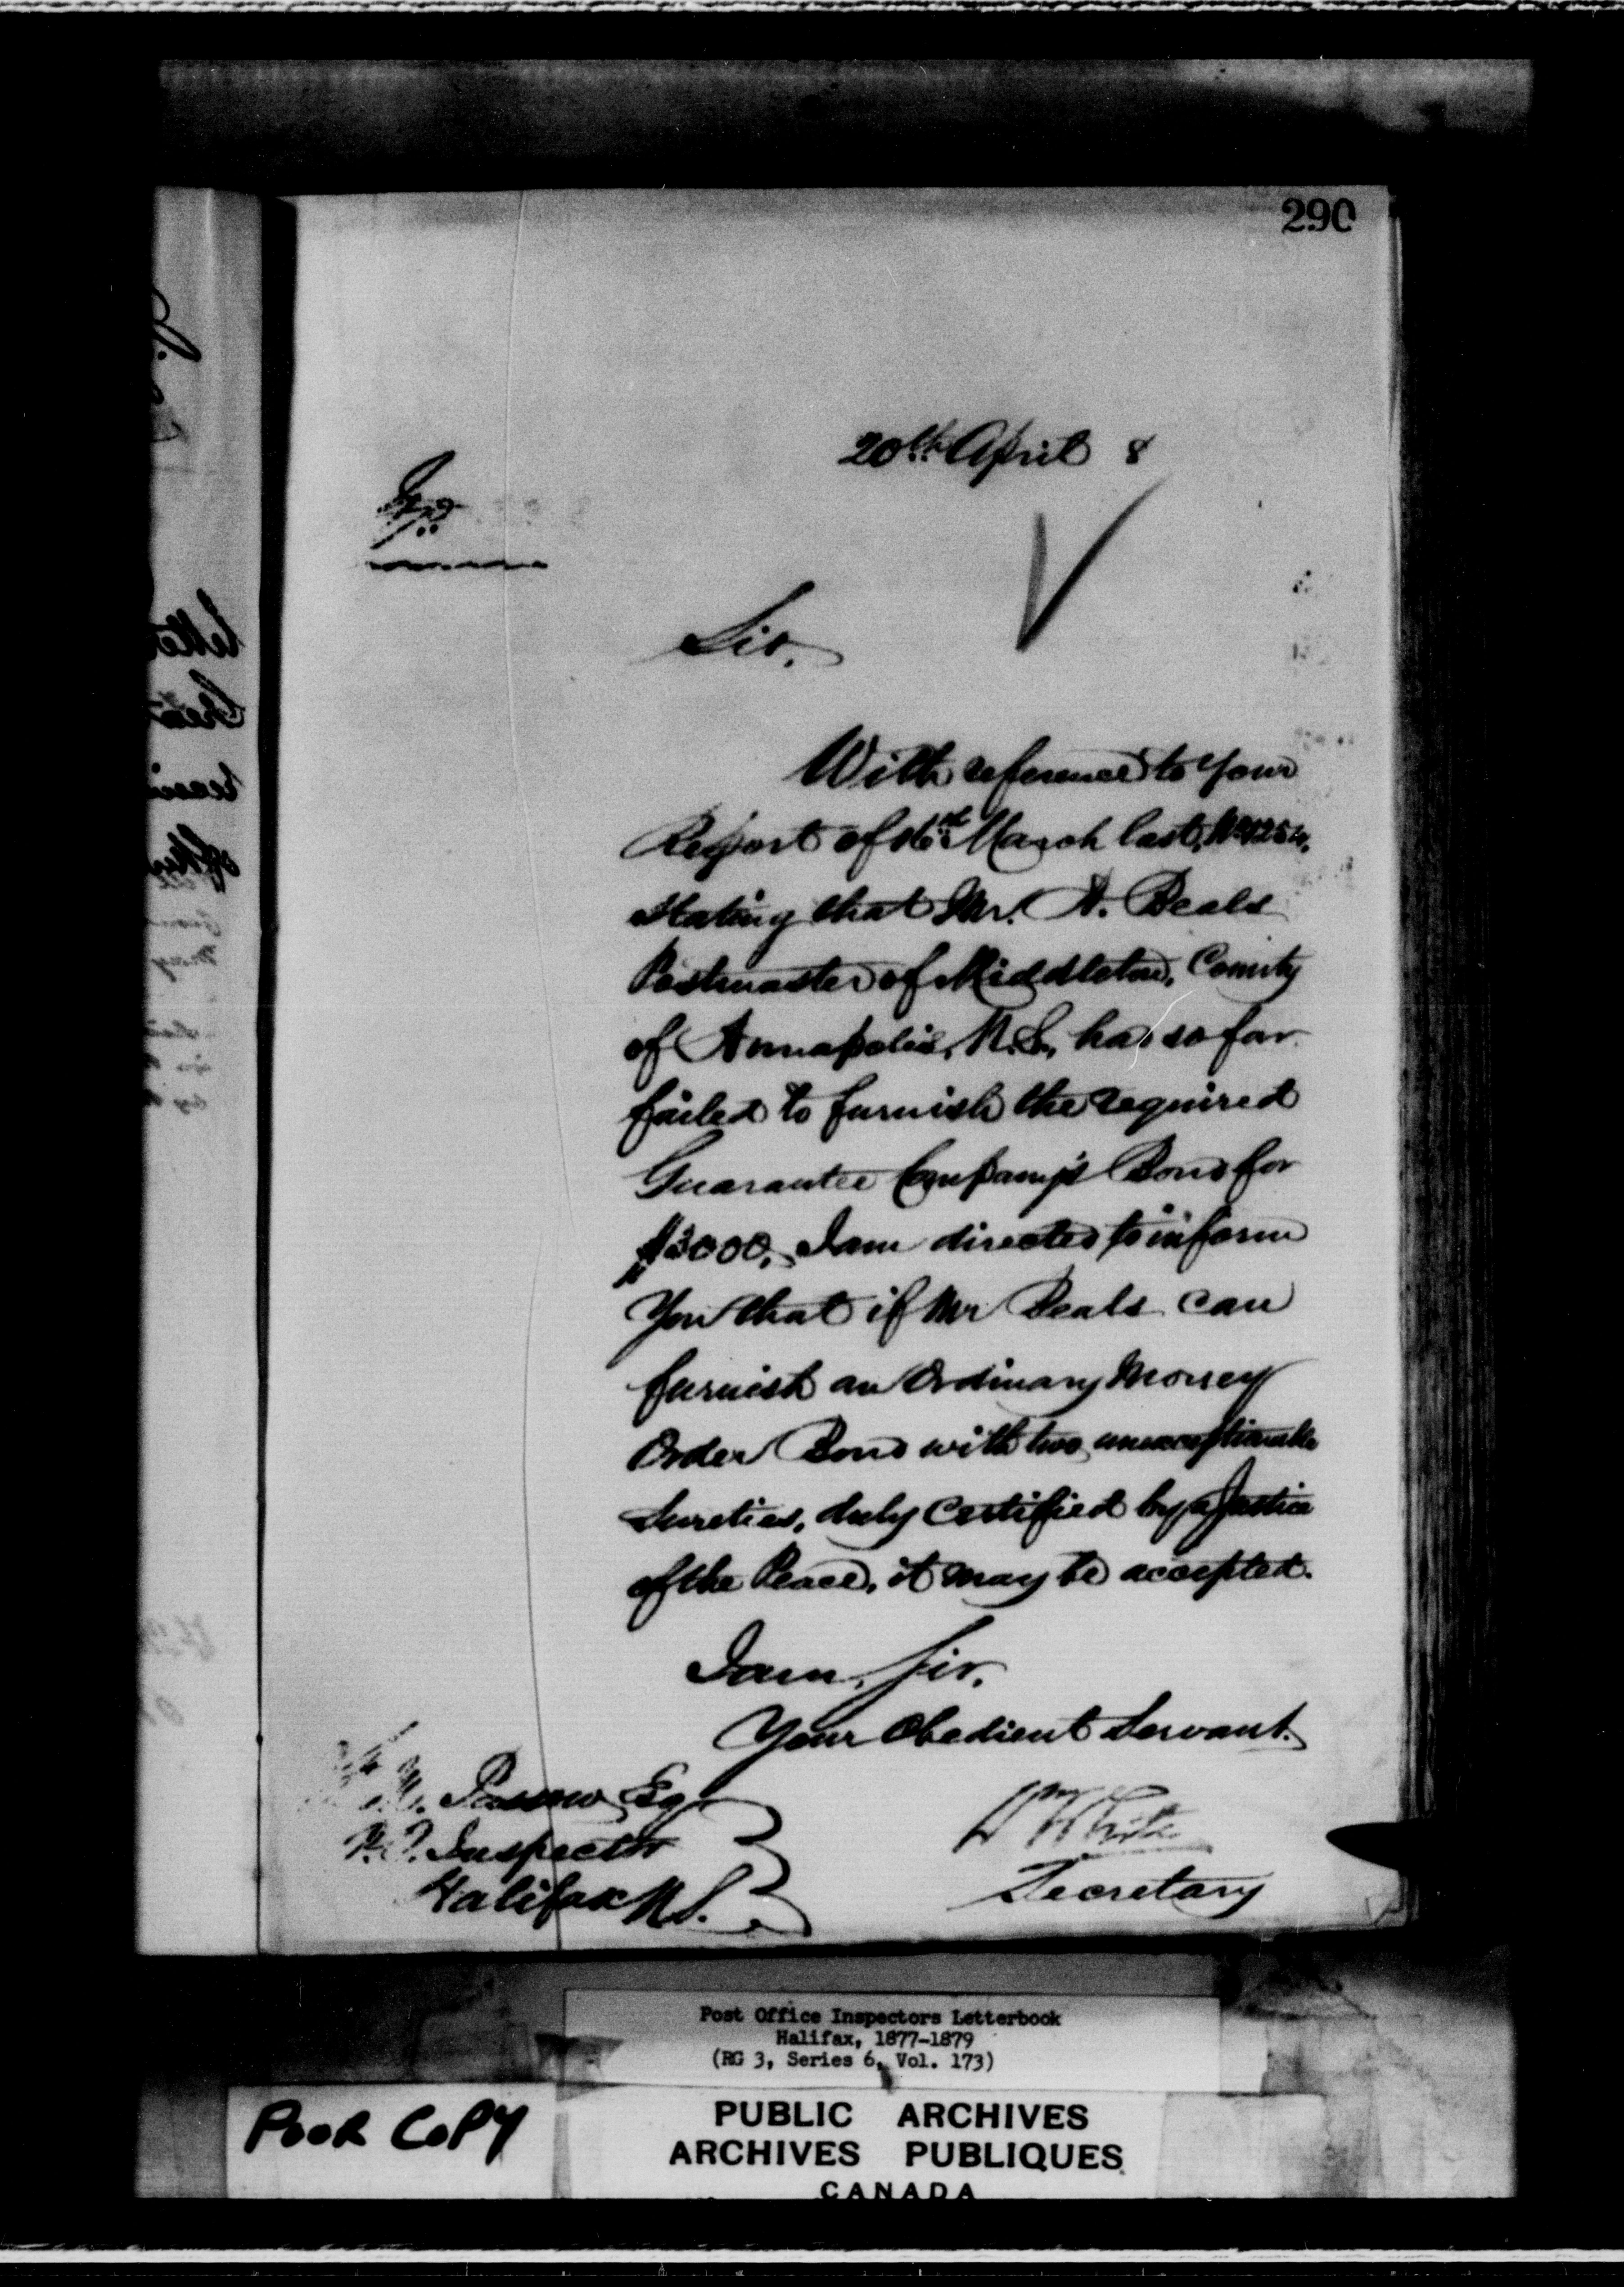 290
20th April 8
Sir,
With reference to your
Report of March last, No 1254,
stating that Mr. A. Beals
Postmaster of Middleton, County
of Annapolis, N.S., has so far
failed to furnish the required
Guarantee Company's Bond for
$3000, I am directed to inform
you that if Mr Beals can
furnish an Ordinary Money
Order Bond with two unexceptionable
Sureties, duly certified by a Justice
of the Peace, it may be accepted.
I am, Sir,
Your Obedient Servant.
Passow Esq
P.O. Inspector
Halifax N.S.
Wm White
Secretary
Post Office Inspectors Letterbook
Halifax, 1877-1879
(RG 3, Series 6, Vol. 173)
POOR COPY
PUBLIC ARCHIVES
ARCHIVES PUBLIQUES
CANADA